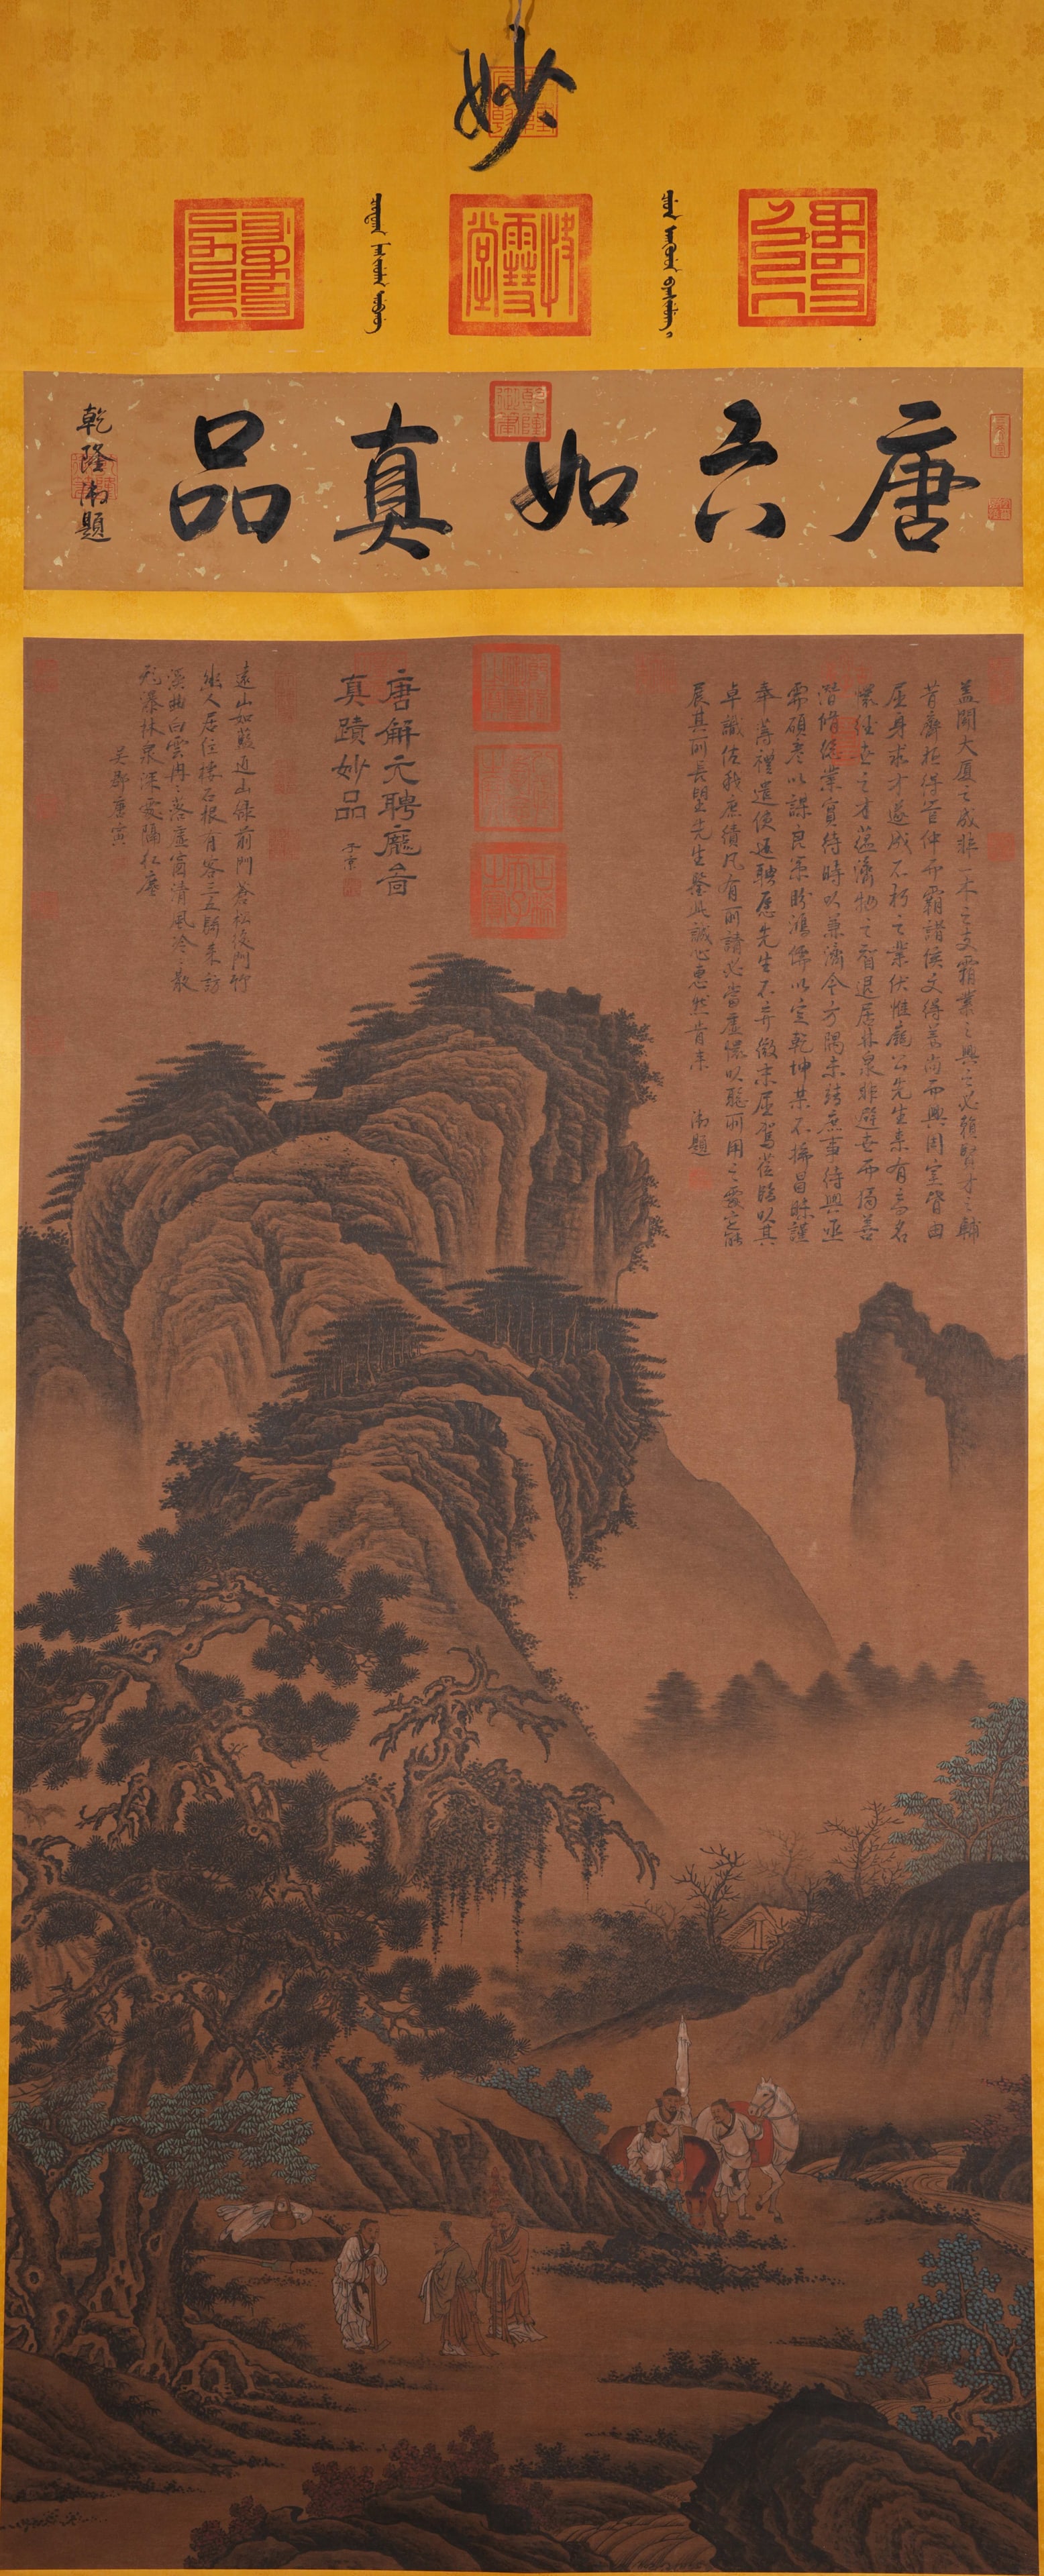 妙
唐六如真品
乾隆御題
蓋聞大厦之成非一木之支霸業之興必賴賢才之輔
昔齊桓得管仲而霸諸侯文得善尚而興周室皆由
屈身求才遂成不朽之業伏惟龐公先生素有高名
懷經世之才蘊濟物之智退居林泉非避世而獨善
潛修德業實待時以兼濟今方隅未靖庶事待興亟
需碩彥以謀良策盼鴻儒以定乾坤某不揣冒昧謹
奉薄禮遣使逕聘愿先生不弃微末屈駕莅臨以其
卓識佐我庶績凡有所請必當虛懷以聽所用之處定能
展其所長望先生鑒此誠心惠然肯来
御題
唐解元聘龐圖
真蹟妙品
子京
遠山如藍近山绿前門蒼松後門竹
幽人居住樓石根有客三五騎来訪
溪曲白雲冉冉落虛窗清風泠泠最
飛瀑林泉深處隔紅塵
吴郡唐寅